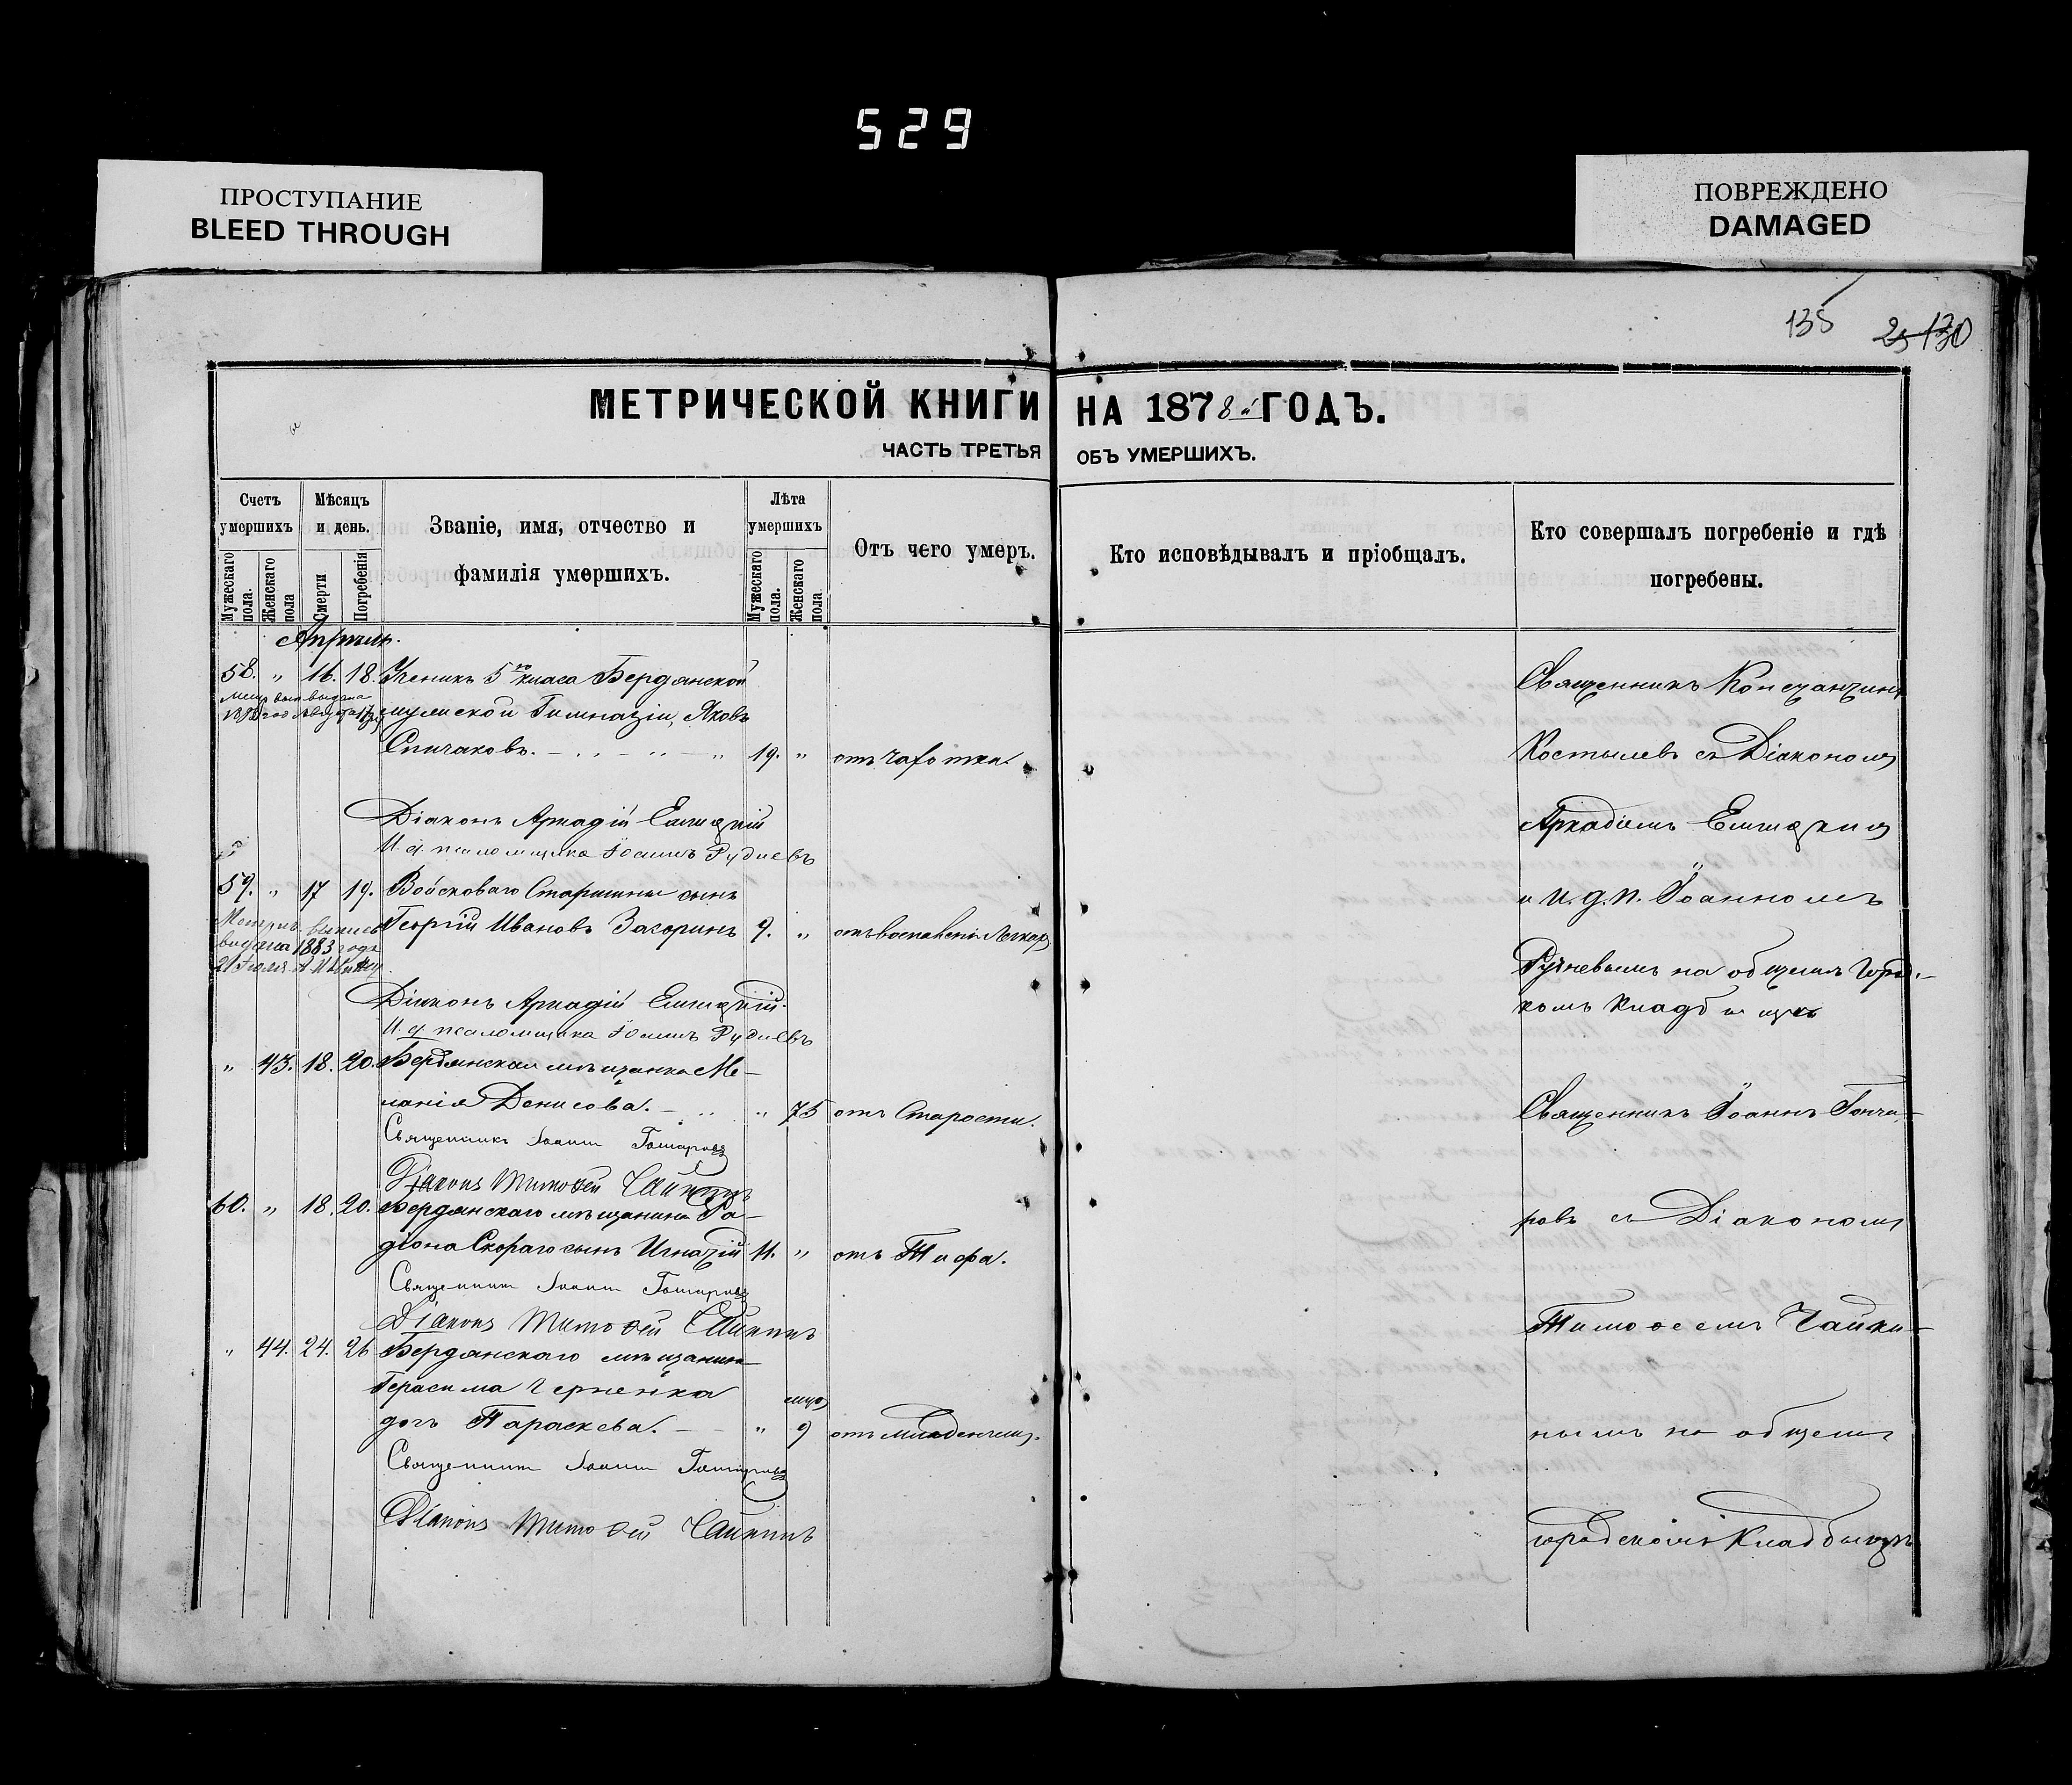 529
ПРОСТУПАНИЕ
BLEED THROUGH
ПОВРЕЖДЕНО
DAMAGED
135 25 130
МЕТРИЧЕСКОЙ КНИГИ НА 1878й ГОДЪ.
ЧАСТЬ ТРЕТЬЯ ОБЪ УМЕРШИХЪ.
Счетъ умершихъ
Мужескаго пола.
Женскаго пола
Мѣсяцъ и день.
Смерти
Погребенія
Званіе, имя, отчество и
фамилія умершихъ.
Лѣта умершихъ
Мужескаго пола.
Женскаго пола
Отъ чего умеръ.
Кто исповѣдывалъ и пріобщалъ.
Кто совершалъ погребеніе и гдѣ
погребены.
Апрѣль.
58. „ 16. 18. Ученикъ 5го класа Бердянской
мужской Гимназіи, Яковъ
Спичаковъ. 19. „ отъ Чахотки.
Діаконъ Аркадій
И. д. псаломщика Іоаннъ Рудневъ
59. „ 17 19. Войсковаго Старшины сынъ
Георгій Ивановъ Загоринъ 9. „ отъ воспаленія Легкихъ
Метрич. выпись
выдана 1883 года
21 Іюля
Діаконъ Аркадій
И. д. псаломщика Іоаннъ Рудневъ
„ 43. 18. 20. Бердянская мѣщанка Ме-
ланія Денисова. „ 75 отъ Старости.
Священникъ Іоаннъ Гончаровъ
Діаконъ Тимоѳей Чайкинъ
60. „ 18. 20. Бердянскаго мѣщанина Ра-
діона Скораго сынъ Игнатій 11. „ отъ Тифа.
Священникъ Іоаннъ Гончаровъ
Діаконъ Тимоѳей Чайкинъ
„ 44. 24. 26 Бердянскаго мѣщанина
Герасима Черненка
дочь Параскева. „ 9 отъ младенческ.
Священникъ Іоаннъ Гончаровъ
Діаконъ Тимоѳей Чайкинъ
Священникъ Константинъ
Костылевъ съ Діакономъ
Аркадіемъ
и И. д. п. Іоанномъ
Рудневымъ на общемъ Город-
комъ Кладбищѣ
Священникъ Іоаннъ Гонча-
ровъ съ Діакономъ
Тимоѳеемъ Чайки-
нымъ на общемъ
городскомъ Кладбищѣ